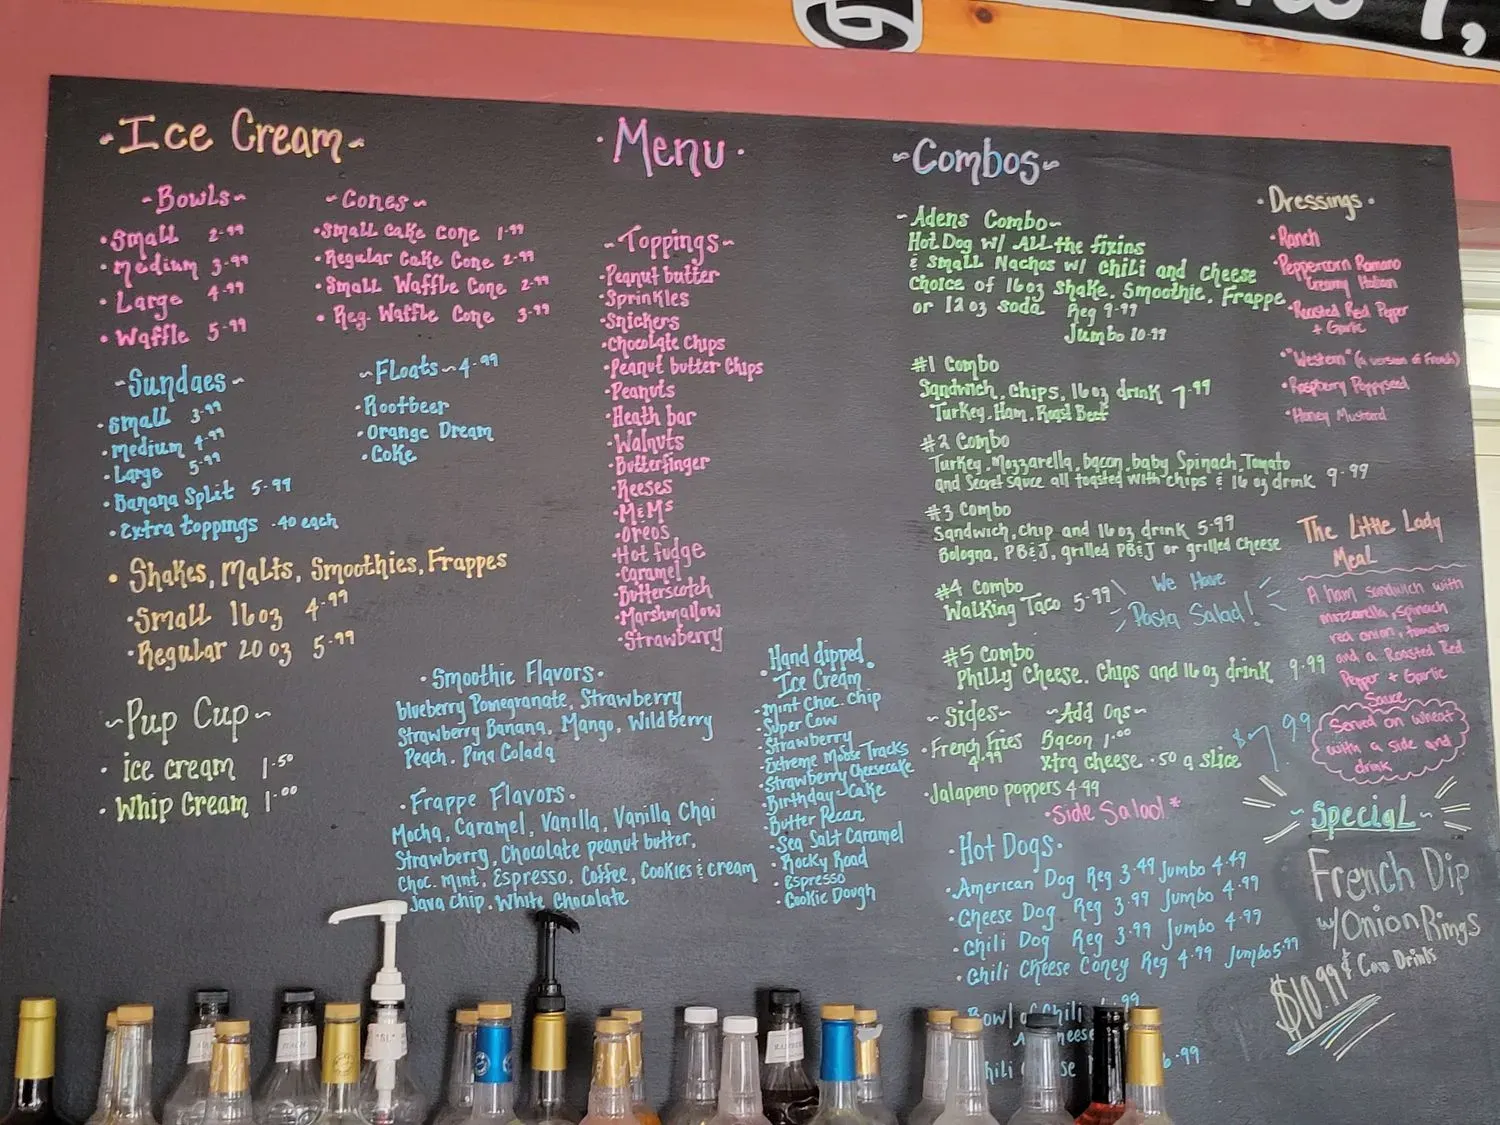 ~Ice Cream~
~Bowls~
•Small 2.99
•Medium 3.99
•Large 4.99
•Waffle 5.99
~Cones~
•Small Cake Cone 1.99
•Regular Cake Cone 2.99
•Small Waffle Cone 2.99
•Reg. Waffle Cone 3.99
~Sundaes~
•Small 3.99
•Medium 4.99
•Large 5.99
•Banana Split 5.99
•Extra toppings .40 each
~Floats~4.99
•Rootbeer
•Orange Dream
•Coke
•Shakes, Malts, Smoothies, Frappes
•Small 16oz 4.99
•Regular 20oz 5.99
~Pup Cup~
•ice cream 1.50
•Whip Cream 1.00
•Smoothie Flavors•
blueberry Pomegranate, Strawberry
Strawberry Banana, Mango, Wild Berry
Peach, Pina Colada
•Frappe Flavors•
Mocha, Caramel, Vanilla, Vanilla Chai
Strawberry, Chocolate peanut butter,
Choc. Mint, Espresso, Coffee, Cookies & cream
Java chip, White Chocolate
•Menu•
~Toppings~
•Peanut butter
•Sprinkles
•Snickers
•Chocolate Chips
•Peanut butter Chips
•Peanuts
•Heath bar
•Walnuts
•Butterfinger
•Reeses
•M&Ms
•Oreos
•Hot fudge
•Caramel
•Butterscotch
•Marshmallow
•Strawberry
Hand dipped
•Ice Cream•
•Mint Choc. Chip
•Super Cow
•Strawberry
•Extreme Moose Tracks
•Strawberry Cheesecake
•Birthday Cake
•Butter Pecan
•Sea Salt Caramel
•Rocky Road
•Espresso
•Cookie Dough
~Combos~
~Adens Combo~
Hot Dog w/ ALL the fixins
& Small Nachos w/ chili and cheese
Choice of 16oz shake, Smoothie, Frappe
or 12oz soda Reg 9.99
Jumbo 10.99
#1 Combo
Sandwich, chips, 16oz drink 7.99
Turkey, Ham, Roast Beef
#2 Combo
Turkey, Mozzarella, bacon, baby Spinach, Tomato
and Secret sauce all toasted with chips & 16oz drink 9.99
#3 Combo
Sandwich, chip and 16oz drink 5.99
Bologna, PB&J, grilled PB&J or grilled cheese
#4 Combo
Walking Taco 5.99
We Have
Pasta Salad!
#5 Combo
Philly Cheese, Chips and 16oz drink 9.99
~Sides~
•French Fries
4.99
•Jalapeno poppers 4.99
~Add Ons~
Bacon 1.00
Xtra cheese .50 a slice
•Side Salad*
•Hot Dogs•
•American Dog Reg 3.49 Jumbo 4.49
•Cheese Dog Reg 3.99 Jumbo 4.99
•Chili Dog Reg 3.99 Jumbo 4.99
•Chili Cheese Coney Reg 4.99 Jumbo 5.99
Bowl of Chili
•Dressings•
•Ranch
•Peppercorn Romano
Creamy Italian
•Roasted Red Pepper
+ Garlic
•"Western" (a version of French)
•Raspberry Poppyseed
•Honey Mustard
The Little Lady
Meal
A ham sandwich with
mozzarella, spinach
red onion, tomato
and a Roasted Red
Pepper + Garlic
Sauce
$7.99
Served on wheat
with a side and
drink
~Special~
French Dip
w/Onion Rings
$10.99 & Cow Drinks